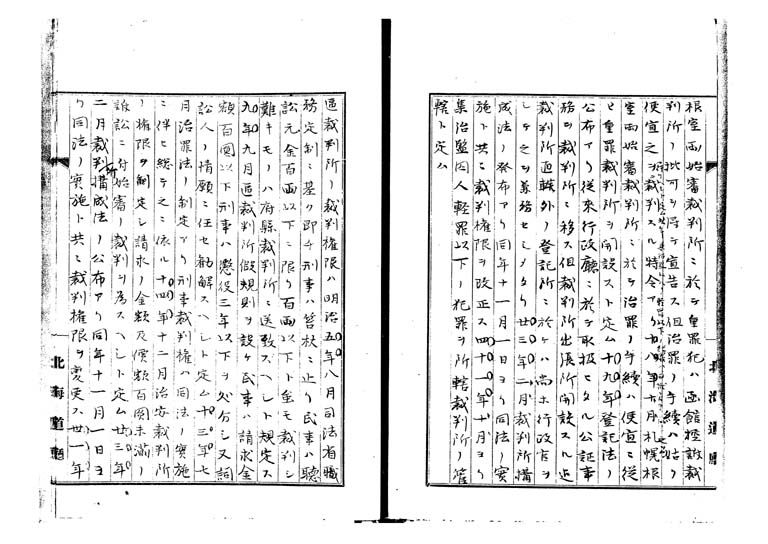 根室両始審裁判所ニ於テ重罪犯ハ函館控訴裁
判所ノ批可ヲ得テ宣告ス但治罪ノ手続ハ姑ク
便宜之ヲ裁判スル特令アリ十八年十月札幌根
室両始審裁判所ニ於テ治罪ノ手続ハ便宜ニ従
ヒ重罪裁判所ヲ開設スト定ム十九年登記法ノ
公布アリ従来行政庁ニ於テ取扱ヒタル公証事
務ヲ裁判所ニ移ス但裁判所出張所開設スル迄
裁判所遠隔外ノ登記所ニ於テハ尚ホ行政官ヲ
シテ之ヲ兼務セシメタリ廿三年二月裁判所構
成法ノ発布アリ同年十一月一日ヨリ同法ノ実
施ト共ニ裁判権限ヲ改正ス四十一年十月ヨリ
集治監囚人軽罪以下ノ犯罪ヲ所轄裁判所ノ管
轄ト定ム
区裁判所ノ裁判権限ハ明治五年八月司法省職
務定制ニ基ク即チ刑事ハ笞杖ニ止リ民事ハ聴
訟元金百両以下ニ限リ百両以下ト虽モ裁判シ
難キモノハ府県裁判所ニ送致スヘシト規定ス
九年九月区裁判所仮規則ヲ設ケ民事ハ請求金
額百圓以下刑事ハ懲役三年以下ヲ処分シ又詞
訟人ノ情願ニ任セ勧解スヘシト定ム十三年七
月治罪法ノ制定アリ刑事裁判権ハ同法ノ実施
ニ伴ヒ総テ之ニ依ル十四年十二月治安裁判所
ノ権限ヲ制定シ請求ノ金額及價額百圓未満ノ
訴訟ニ付始審ノ裁判ヲ為スヘシト定ム廿三年
二月裁判所構成法ノ公布アリ同年十一月一日ヨ
リ同法ノ実施ト共ニ裁判権限ヲ変更ス廿一年
北海道廳